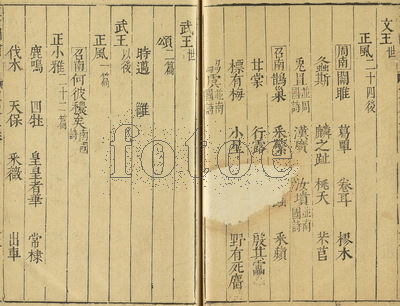 文王世
正風二十四後
周南關雎 葛覃 卷耳 樛木
螽斯 麟之趾 桃夭 芣苢
兔罝並周南國詩 漢廣 汝墳並南國詩
召南鵲巢 采蘩 采蘋
甘棠 行露 殷其靁
標有梅 小星 野有死麕
虞並南國詩
武王世
頌二篇
時邁 雝
武王以後
正風一篇
召南何彼穠矣南國詩
正小雅二十二篇
鹿鳴 四牡 皇皇者華 常棣
伐木 天保 采薇 出車
fotoe